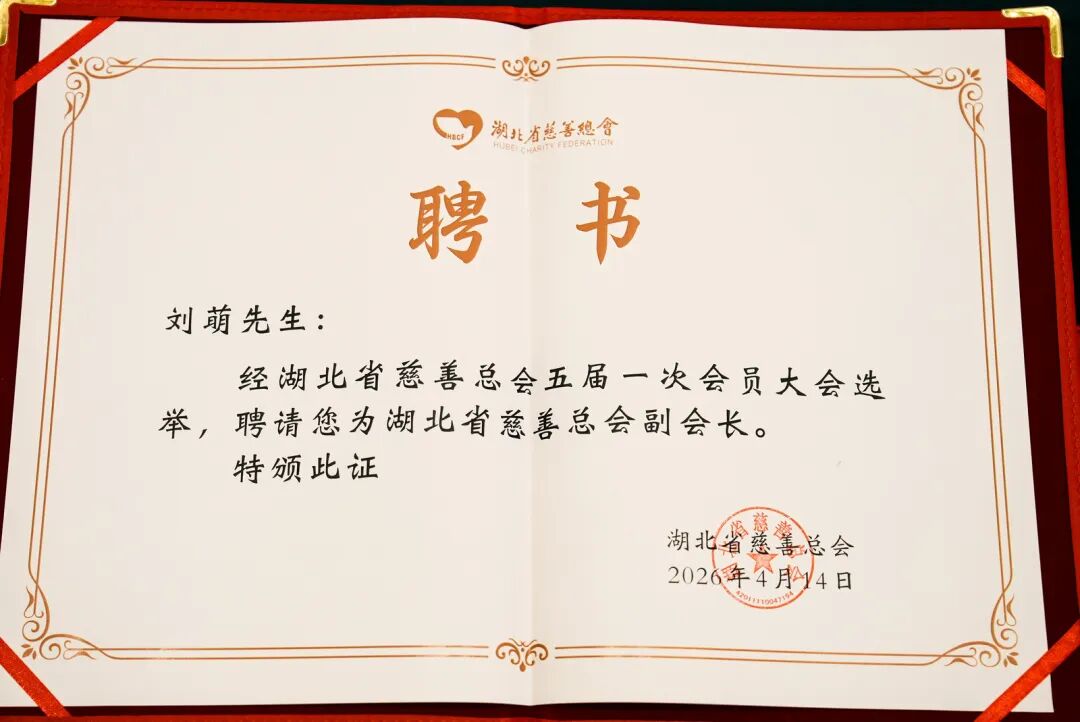 HBCF
湖北省慈善總會
HUBEI CHARITY FEDERATION
聘书
刘萌先生：
经湖北省慈善总会五届一次会员大会选
举，聘请您为湖北省慈善总会副会长。
特颁此证
湖北省慈善总会
2026年4月14日
湖北省慈善总会
42011110047194